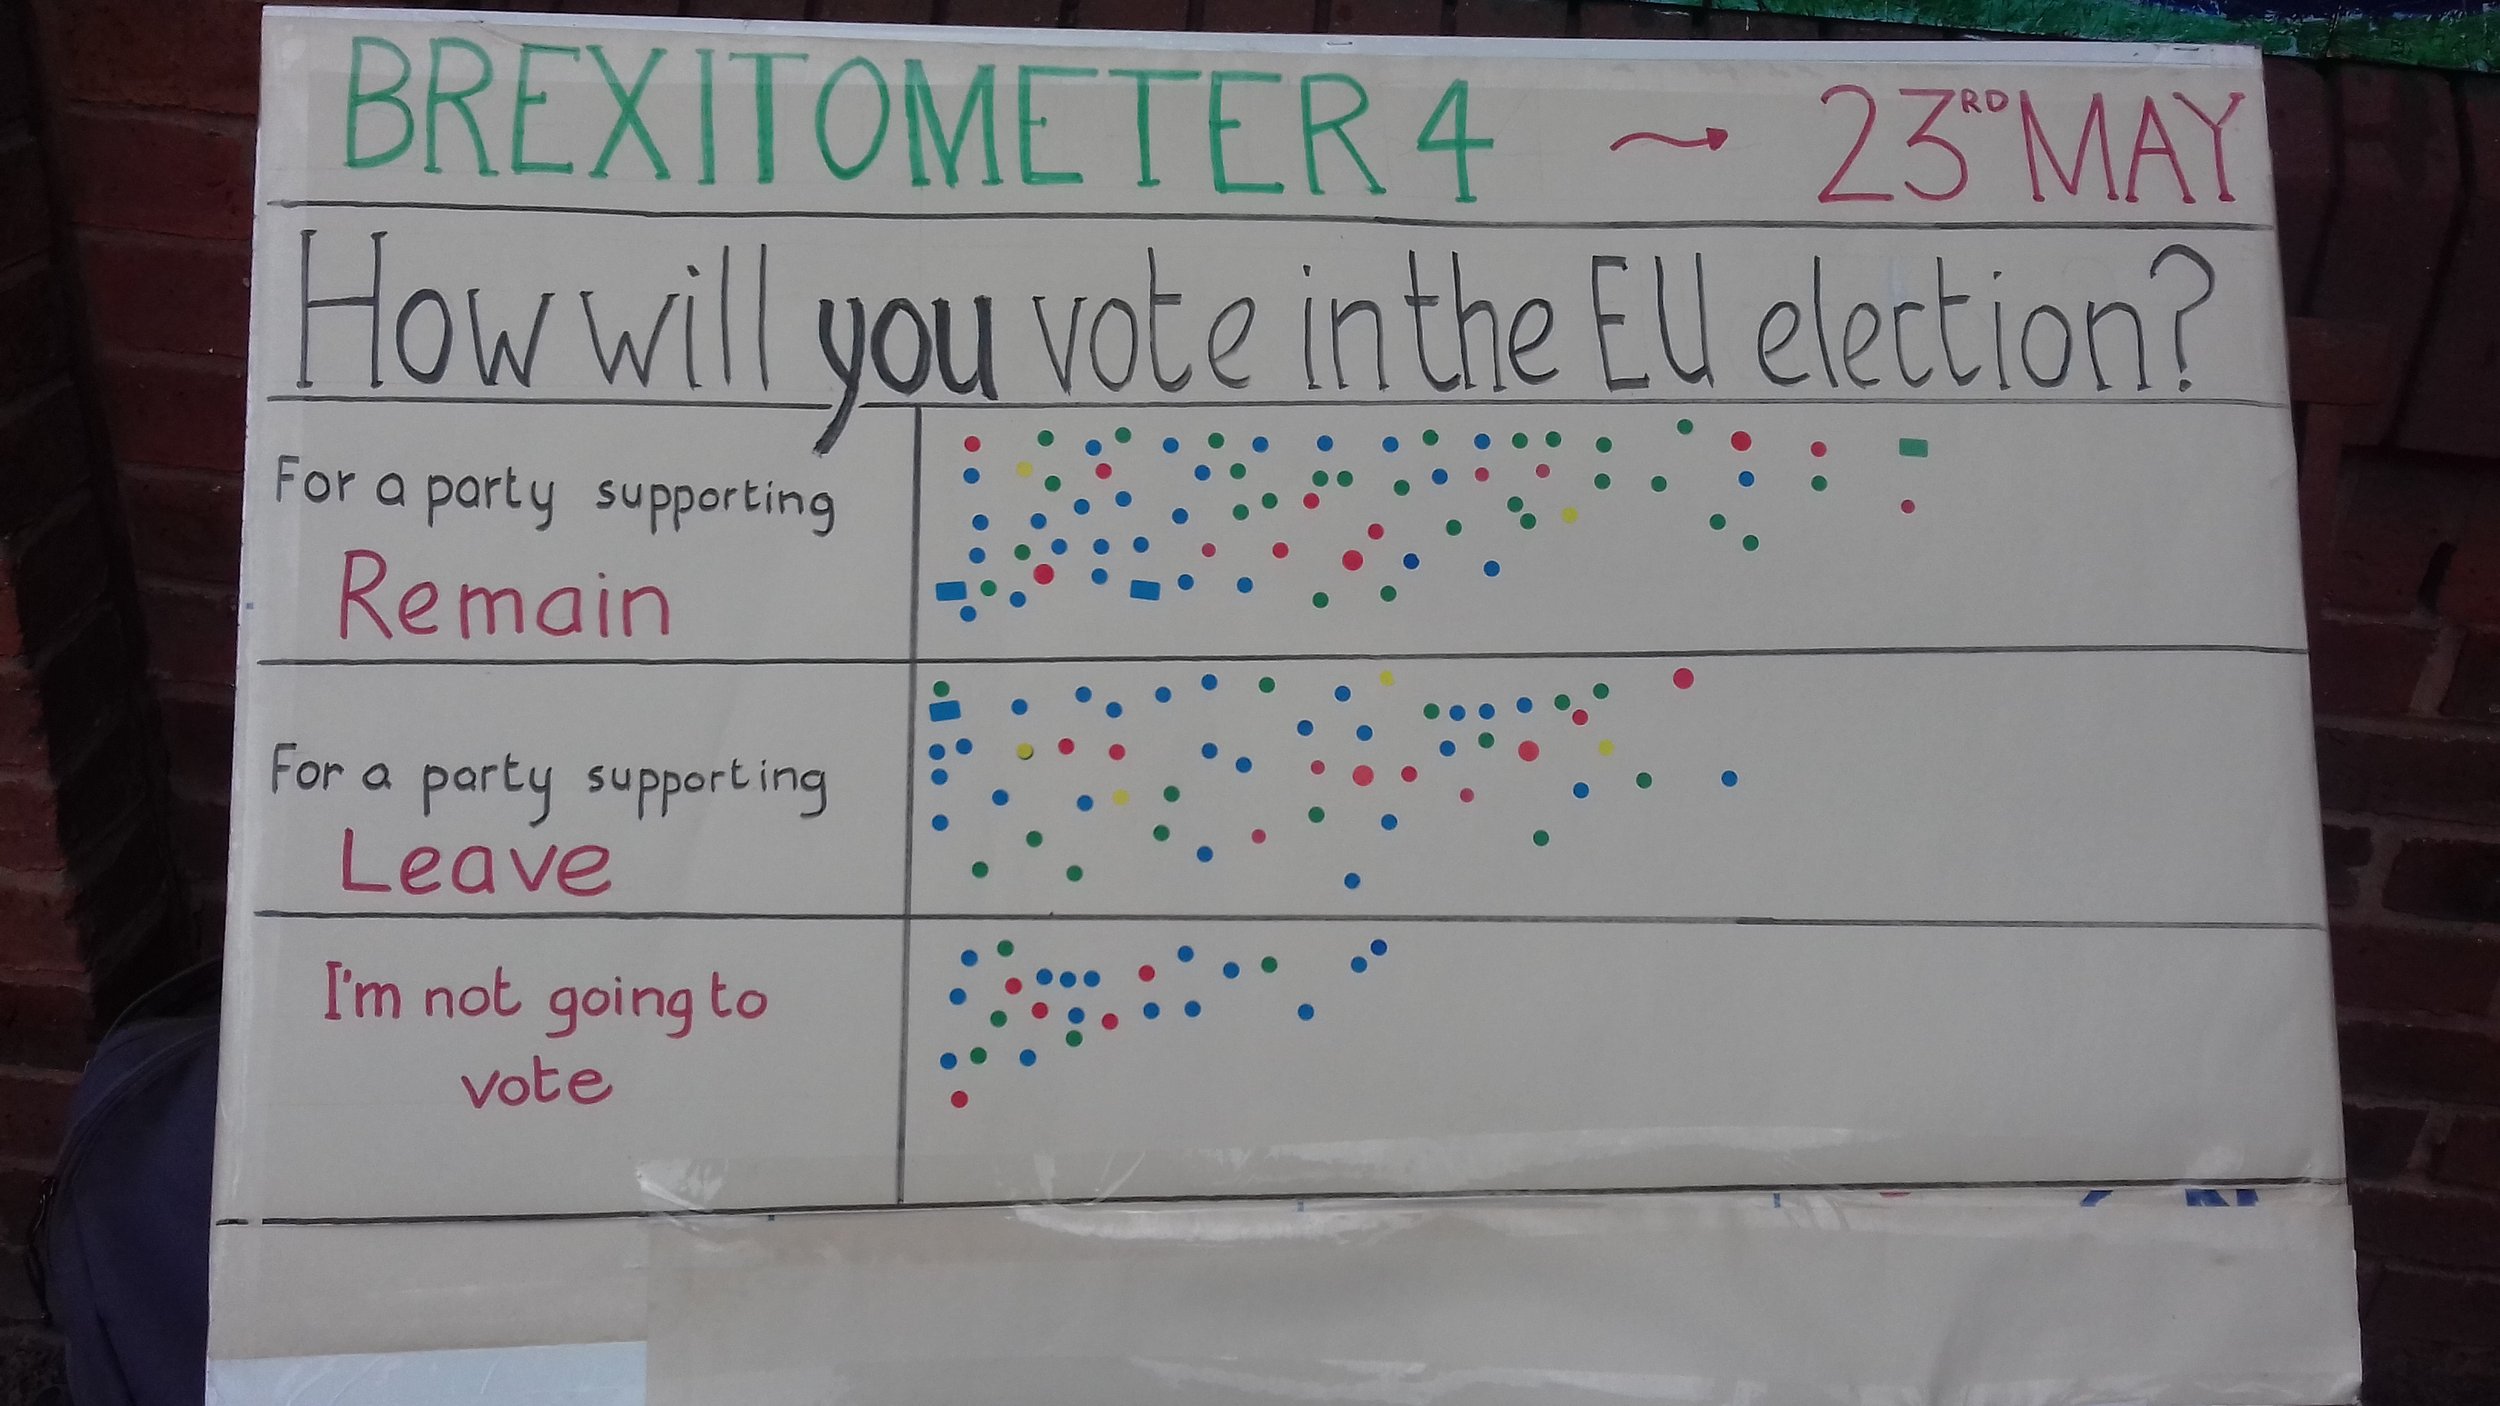 BREXITOMETER 4 → 23RD MAY
How will you vote in the EU election?
For a party supporting
Remain
For a party supporting
Leave
I'm not going to
vote